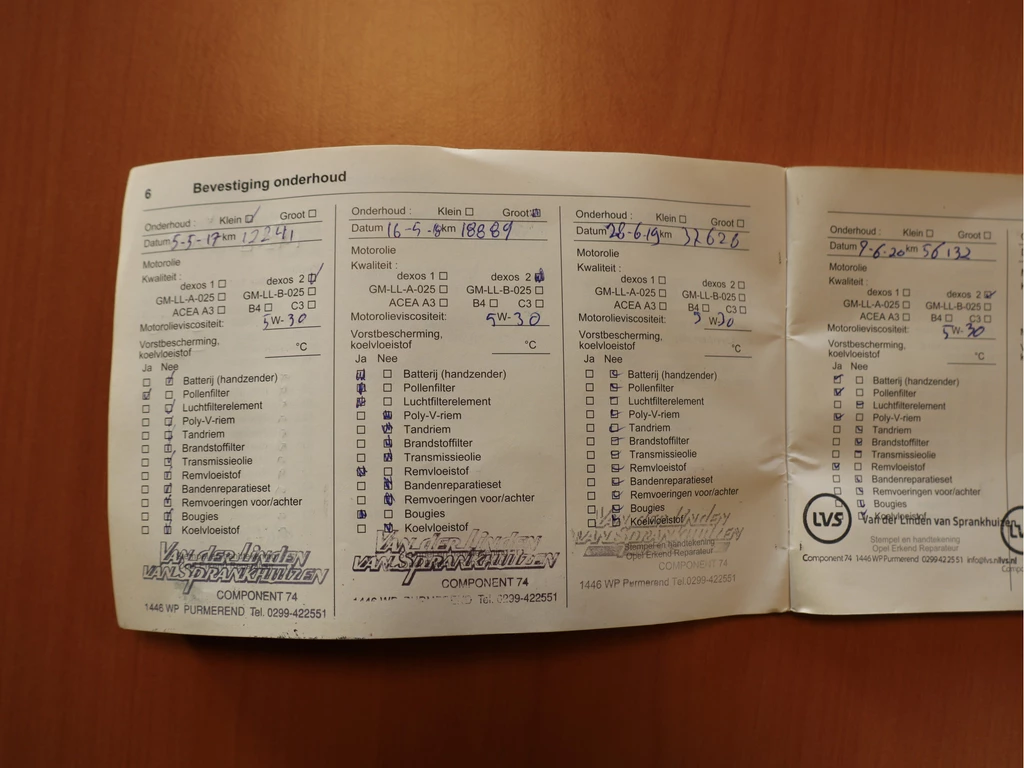 6 Bevestiging onderhoud
Onderhoud : Klein Groot
Datum 5-5-17 km 12241
Motorolie
Kwaliteit :
dexos 1 dexos 2
GM-LL-A-025 GM-LL-B-025
ACEA A3 B4 C3
Motorolieviscositeit: 5W-30
Vorstbescherming,
koelvloeistof °C
Ja Nee
Batterij (handzender)
Pollenfilter
Luchtfilterelement
Poly-V-riem
Tandriem
Brandstoffilter
Transmissieolie
Remvloeistof
Bandenreparatieset
Remvoeringen voor/achter
Bougies
Koelvloeistof
VAN DER LINDEN
VAN SPRANKHUIZEN
COMPONENT 74
1446 WP PURMEREND Tel. 0299-422551
Onderhoud : Klein Groot
Datum 16-5-18 km 18889
Motorolie
Kwaliteit :
dexos 1 dexos 2
GM-LL-A-025 GM-LL-B-025
ACEA A3 B4 C3
Motorolieviscositeit: 5W-30
Vorstbescherming,
koelvloeistof °C
Ja Nee
Batterij (handzender)
Pollenfilter
Luchtfilterelement
Poly-V-riem
Tandriem
Brandstoffilter
Transmissieolie
Remvloeistof
Bandenreparatieset
Remvoeringen voor/achter
Bougies
Koelvloeistof
VAN DER LINDEN
VAN SPRANKHUIZEN
COMPONENT 74
1446 WP PURMEREND Tel. 0299-422551
Onderhoud : Klein Groot
Datum 28-6-19 km 37628
Motorolie
Kwaliteit :
dexos 1 dexos 2
GM-LL-A-025 GM-LL-B-025
ACEA A3 B4 C3
Motorolieviscositeit: 5W30
Vorstbescherming,
koelvloeistof °C
Ja Nee
Batterij (handzender)
Pollenfilter
Luchtfilterelement
Poly-V-riem
Tandriem
Brandstoffilter
Transmissieolie
Remvloeistof
Bandenreparatieset
Remvoeringen voor/achter
Bougies
Koelvloeistof
Stempel en handtekening
Opel Erkend Reparateur
COMPONENT 74
1446 WP Purmerend Tel. 0299-422551
Onderhoud : Klein Groot
Datum 9-6-20 km 56132
Motorolie
Kwaliteit :
dexos 1 dexos 2
GM-LL-A-025 GM-LL-B-025
ACEA A3 B4 C3
Motorolieviscositeit: 5W-30
Vorstbescherming,
koelvloeistof °C
Ja Nee
Batterij (handzender)
Pollenfilter
Luchtfilterelement
Poly-V-riem
Tandriem
Brandstoffilter
Transmissieolie
Remvloeistof
Bandenreparatieset
Remvoeringen voor/achter
Bougies
Koelvloeistof
LVS Van der Linden van Sprankhuizen
Stempel en handtekening
Opel Erkend Reparateur
Component 74 1446 WP Purmerend 0299422551 info@lvs.nl lvs.nl